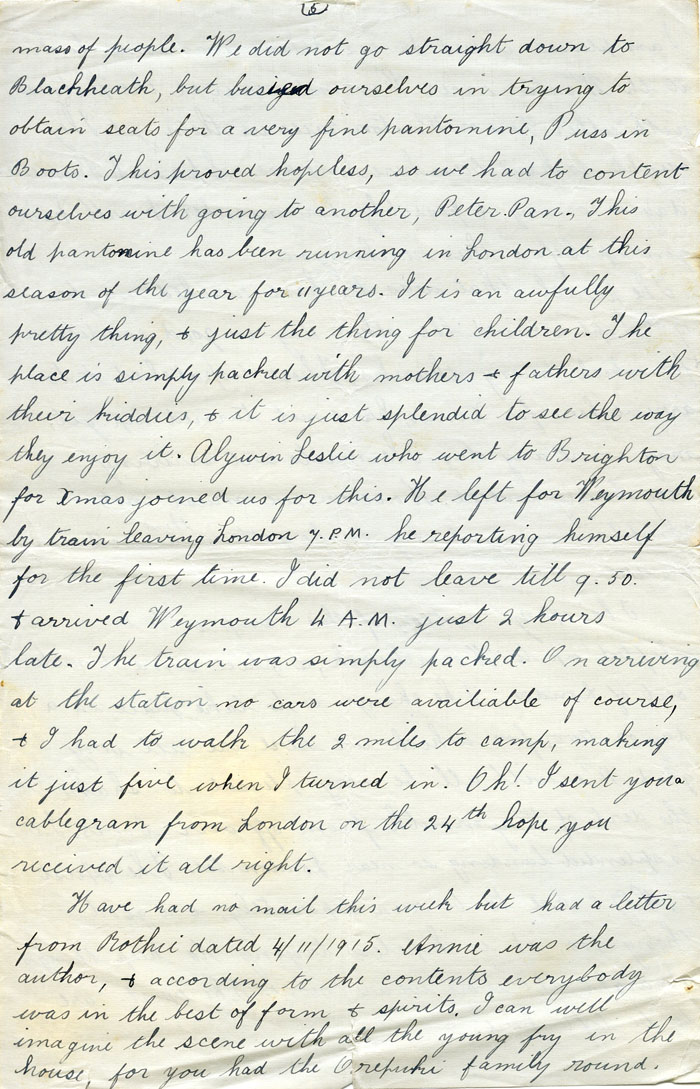 (5)
mass of people. We did not go straight down to
Blackheath, but busied ourselves in trying to
obtain seats for a very fine pantomine, Puss in
Boots. This proved hopeless, so we had to content
ourselves with going to another, Peter Pan. This
old pantomine has been running in London at this
season of the year for 11 years. It is an awfully
pretty thing, & just the thing for children. The
place is simply packed with mothers & fathers with
their kiddies, & it is just splendid to see the way
they enjoy it. Alywin Leslie who went to Brighton
for Xmas joined us for this. He left for Weymouth
by train leaving London 7. P.M. he reporting himself
for the first time. I did not leave till 9.50.
& arrived Weymouth 4 A.M. just 2 hours
late. The train was simply packed. On arriving
at the station no cars were availiable of course,
& I had to walk the 2 miles to camp, making
it just five when I turned in. Oh! I sent you a
cablegram from London on the 24th hope you
received it all right.
Have had no mail this week but had a letter
from Rothie dated 4/11/1915. Annie was the
author, & according to the contents everybody
was in the best of form & spirits. I can well
imagine the scene with all the young fry in the
house, for you had the Orepuki family round.